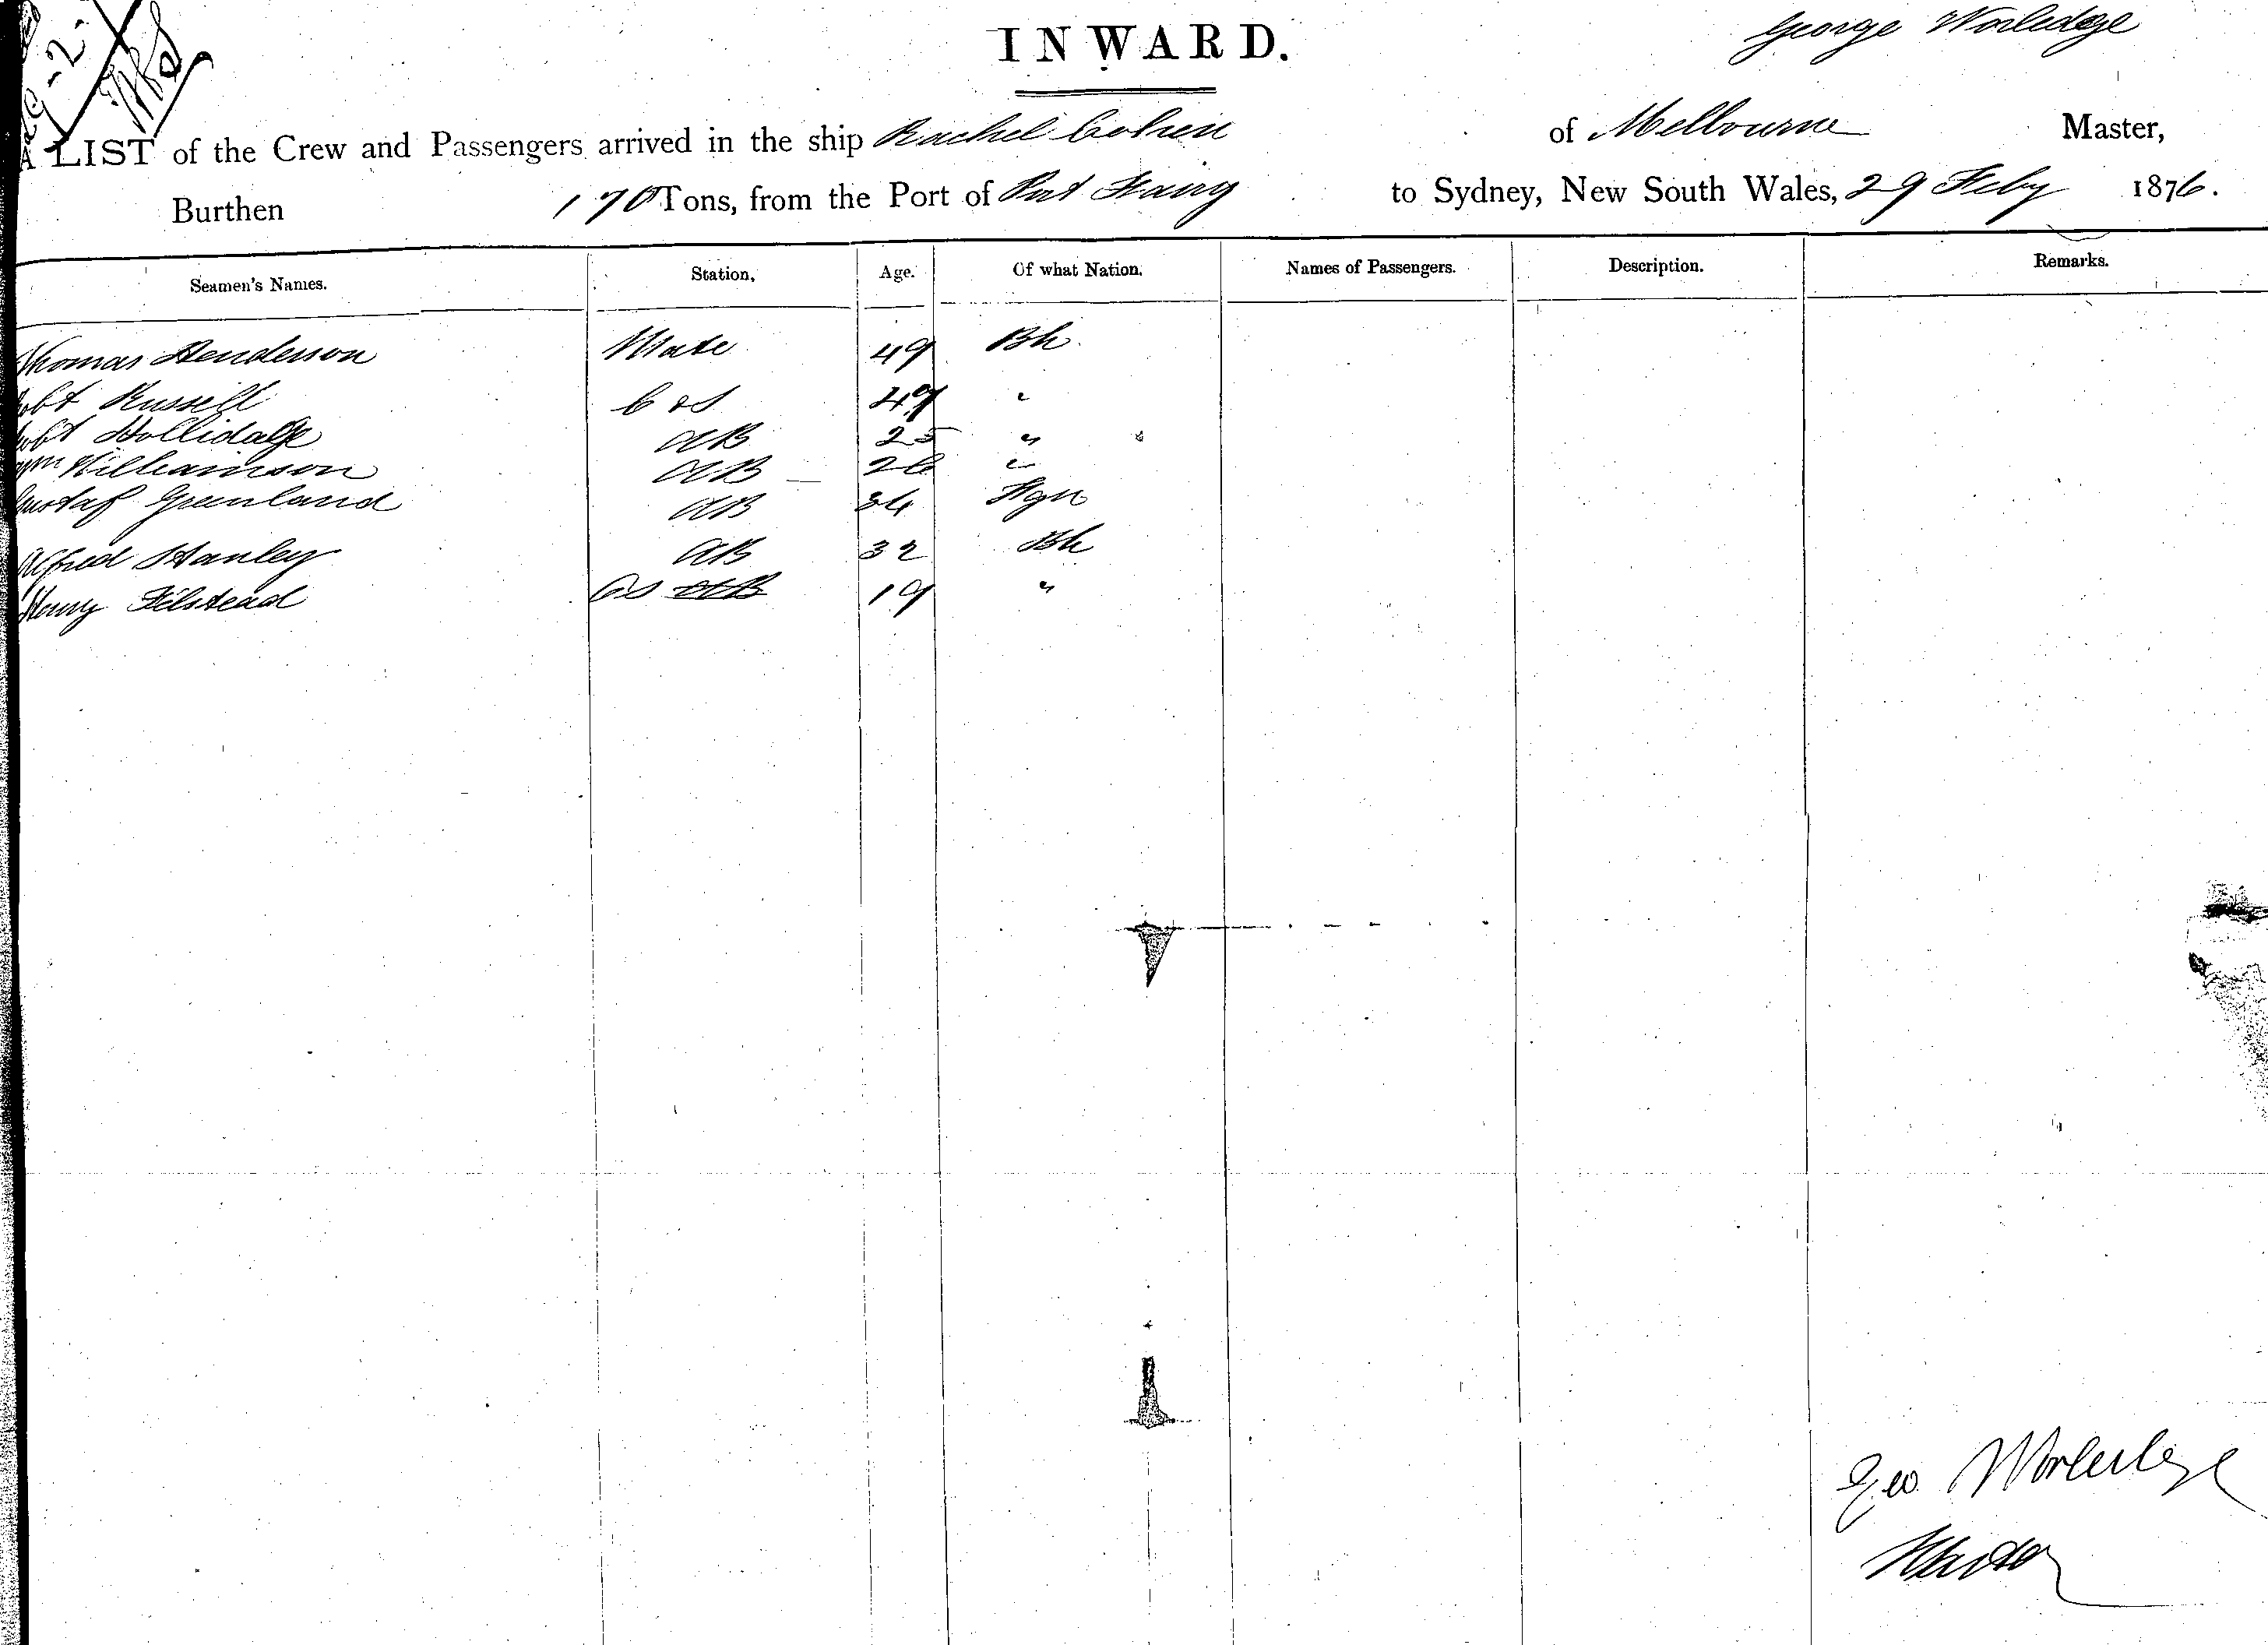 29-2-
INWARD.
George Worledge
A LIST of the Crew and Passengers arrived in the ship Rachel Cohen of Melbourne Master,
Burthen 170 Tons, from the Port of to Sydney, New South Wales, 29 Feby 1876.
Seamen's Names. Station, Age. Of what Nation. Names of Passengers. Description. Remarks.
Thomas Henderson Mate 49 Bh
obt Russell C & S 49 "
obt Hollidage AB 25 "
Wm Williamson AB 26 "
Gustaf Greenland AB 34 Fgn
Alfred Stanley AB 32 Bh
Henry Filstead OS AB 19 "
Geo Worledge
Master